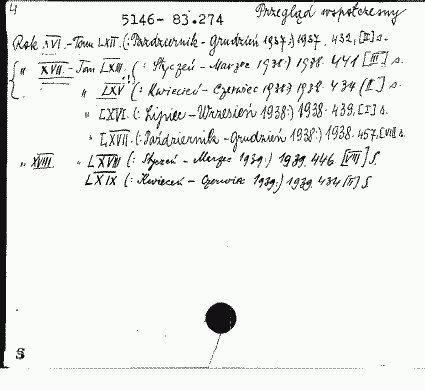 4
5146-83.274
Przegląd współczesny
Rok XVI. - Tom LXII. (: Październik - Grudzień 1937:) 1937. 432, [II] s.
" XVII. - Tom LXIII. (: Styczeń - Marzec 1938:) 1938. 441 [III] s.
" LXV (!) (: Kwiecień - Czerwiec 1938:) 1938. 434 [II] s.
" LXVI. (: Lipiec - Wrzesień 1938:) 1938. 439. [I] s.
" LXVII. (: Październik - Grudzień 1938:) 1938. 457. [VII] s.
" XVIII " LXVIII (: Styczeń - Marzec 1939:) 1939. 446 [VII] S.
LXIX (: Kwiecień - Czerwiec 1939:) 1939. 434 [II] S
S